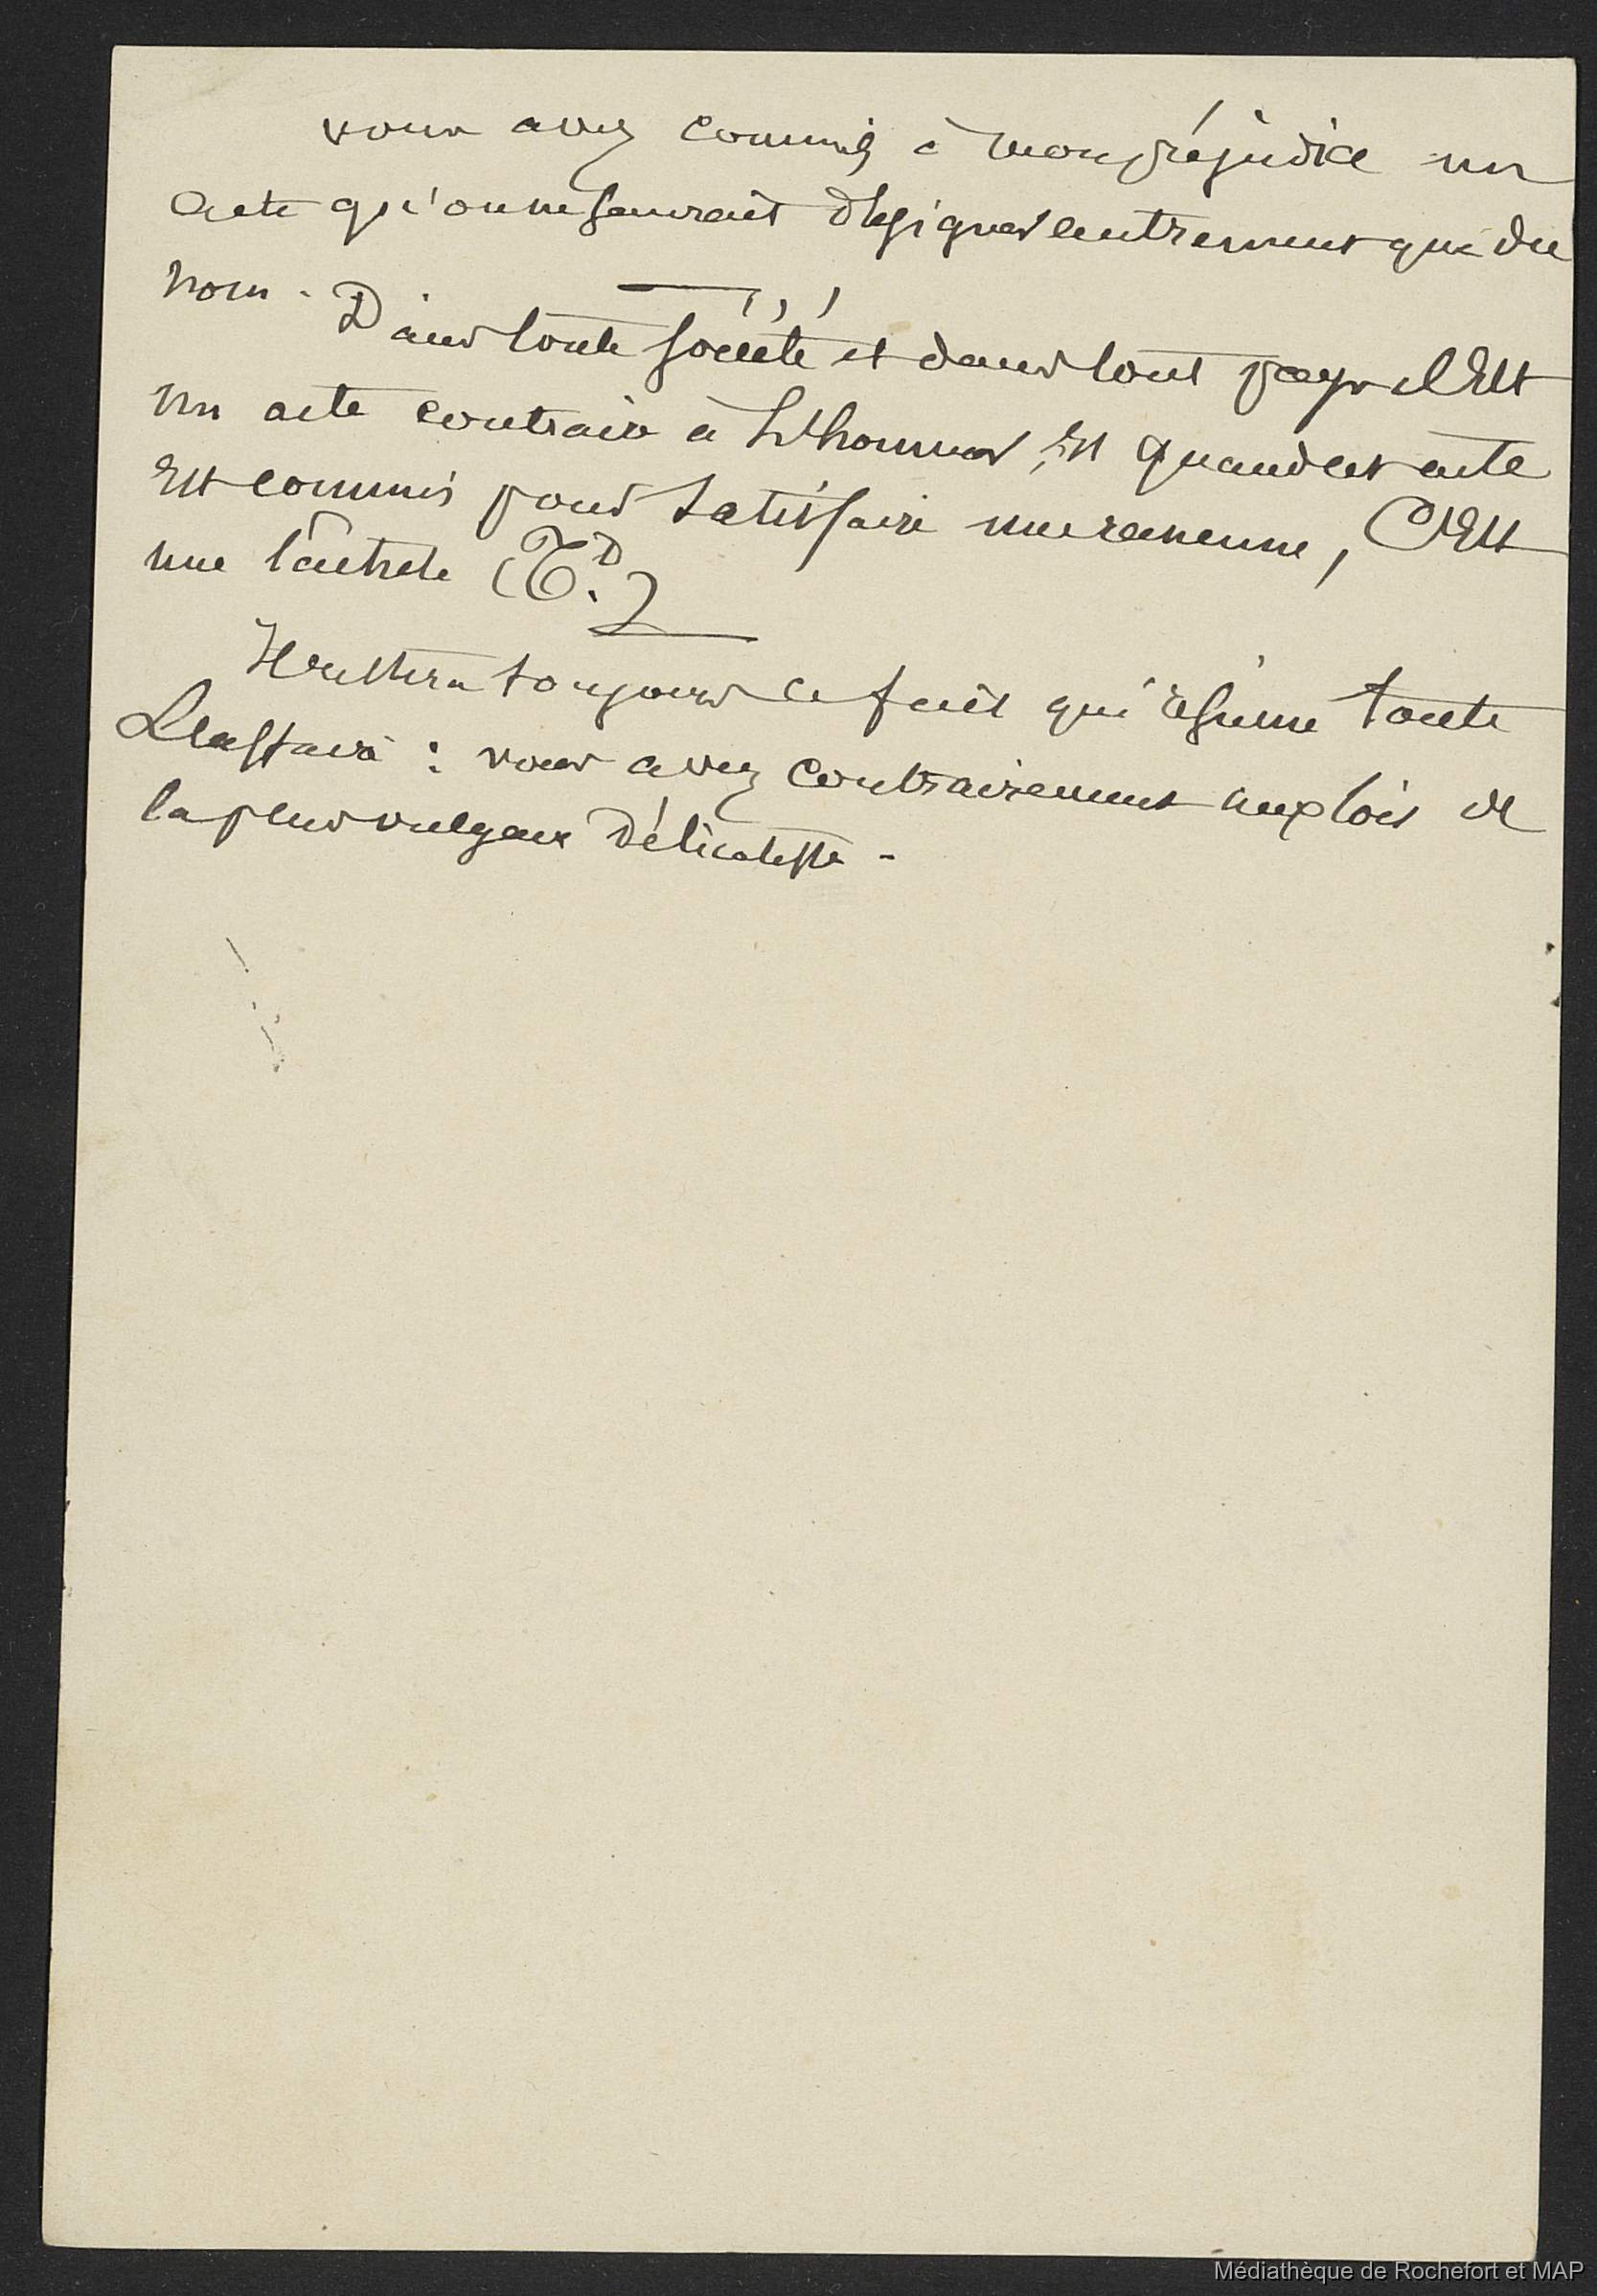 vous avez commis à mon préjudice un
acte qu'on ne saurait désigner autrement que du
nom.
Dans toute société et dans tout pays il Est
un acte contraire à L'honneur, Et quand cet acte
Est commis pour satisfaire une rancune, C'Est
une
Il restera toujours ce fait qui résume toute
L'affaire : vous avez contrairement aux lois de
la plus vulgaire Délicatesse -
Médiathèque de Rochefort et MAP